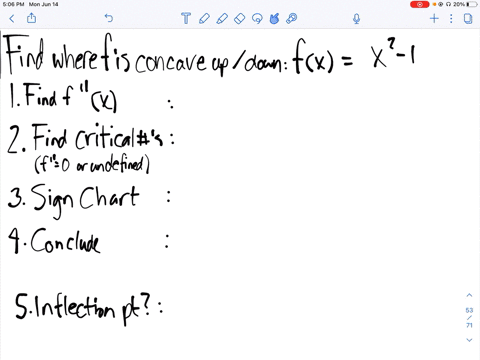 5:06 PM Mon Jun 14
20%
Find where f is concave up/down: f(x) = x²-1
1. Find f"(x) :
2. Find Critical #'s :
(f"=0 or undefined)
3. Sign Chart :
4. Conclude :
5. Inflection pt? :
53
/
71